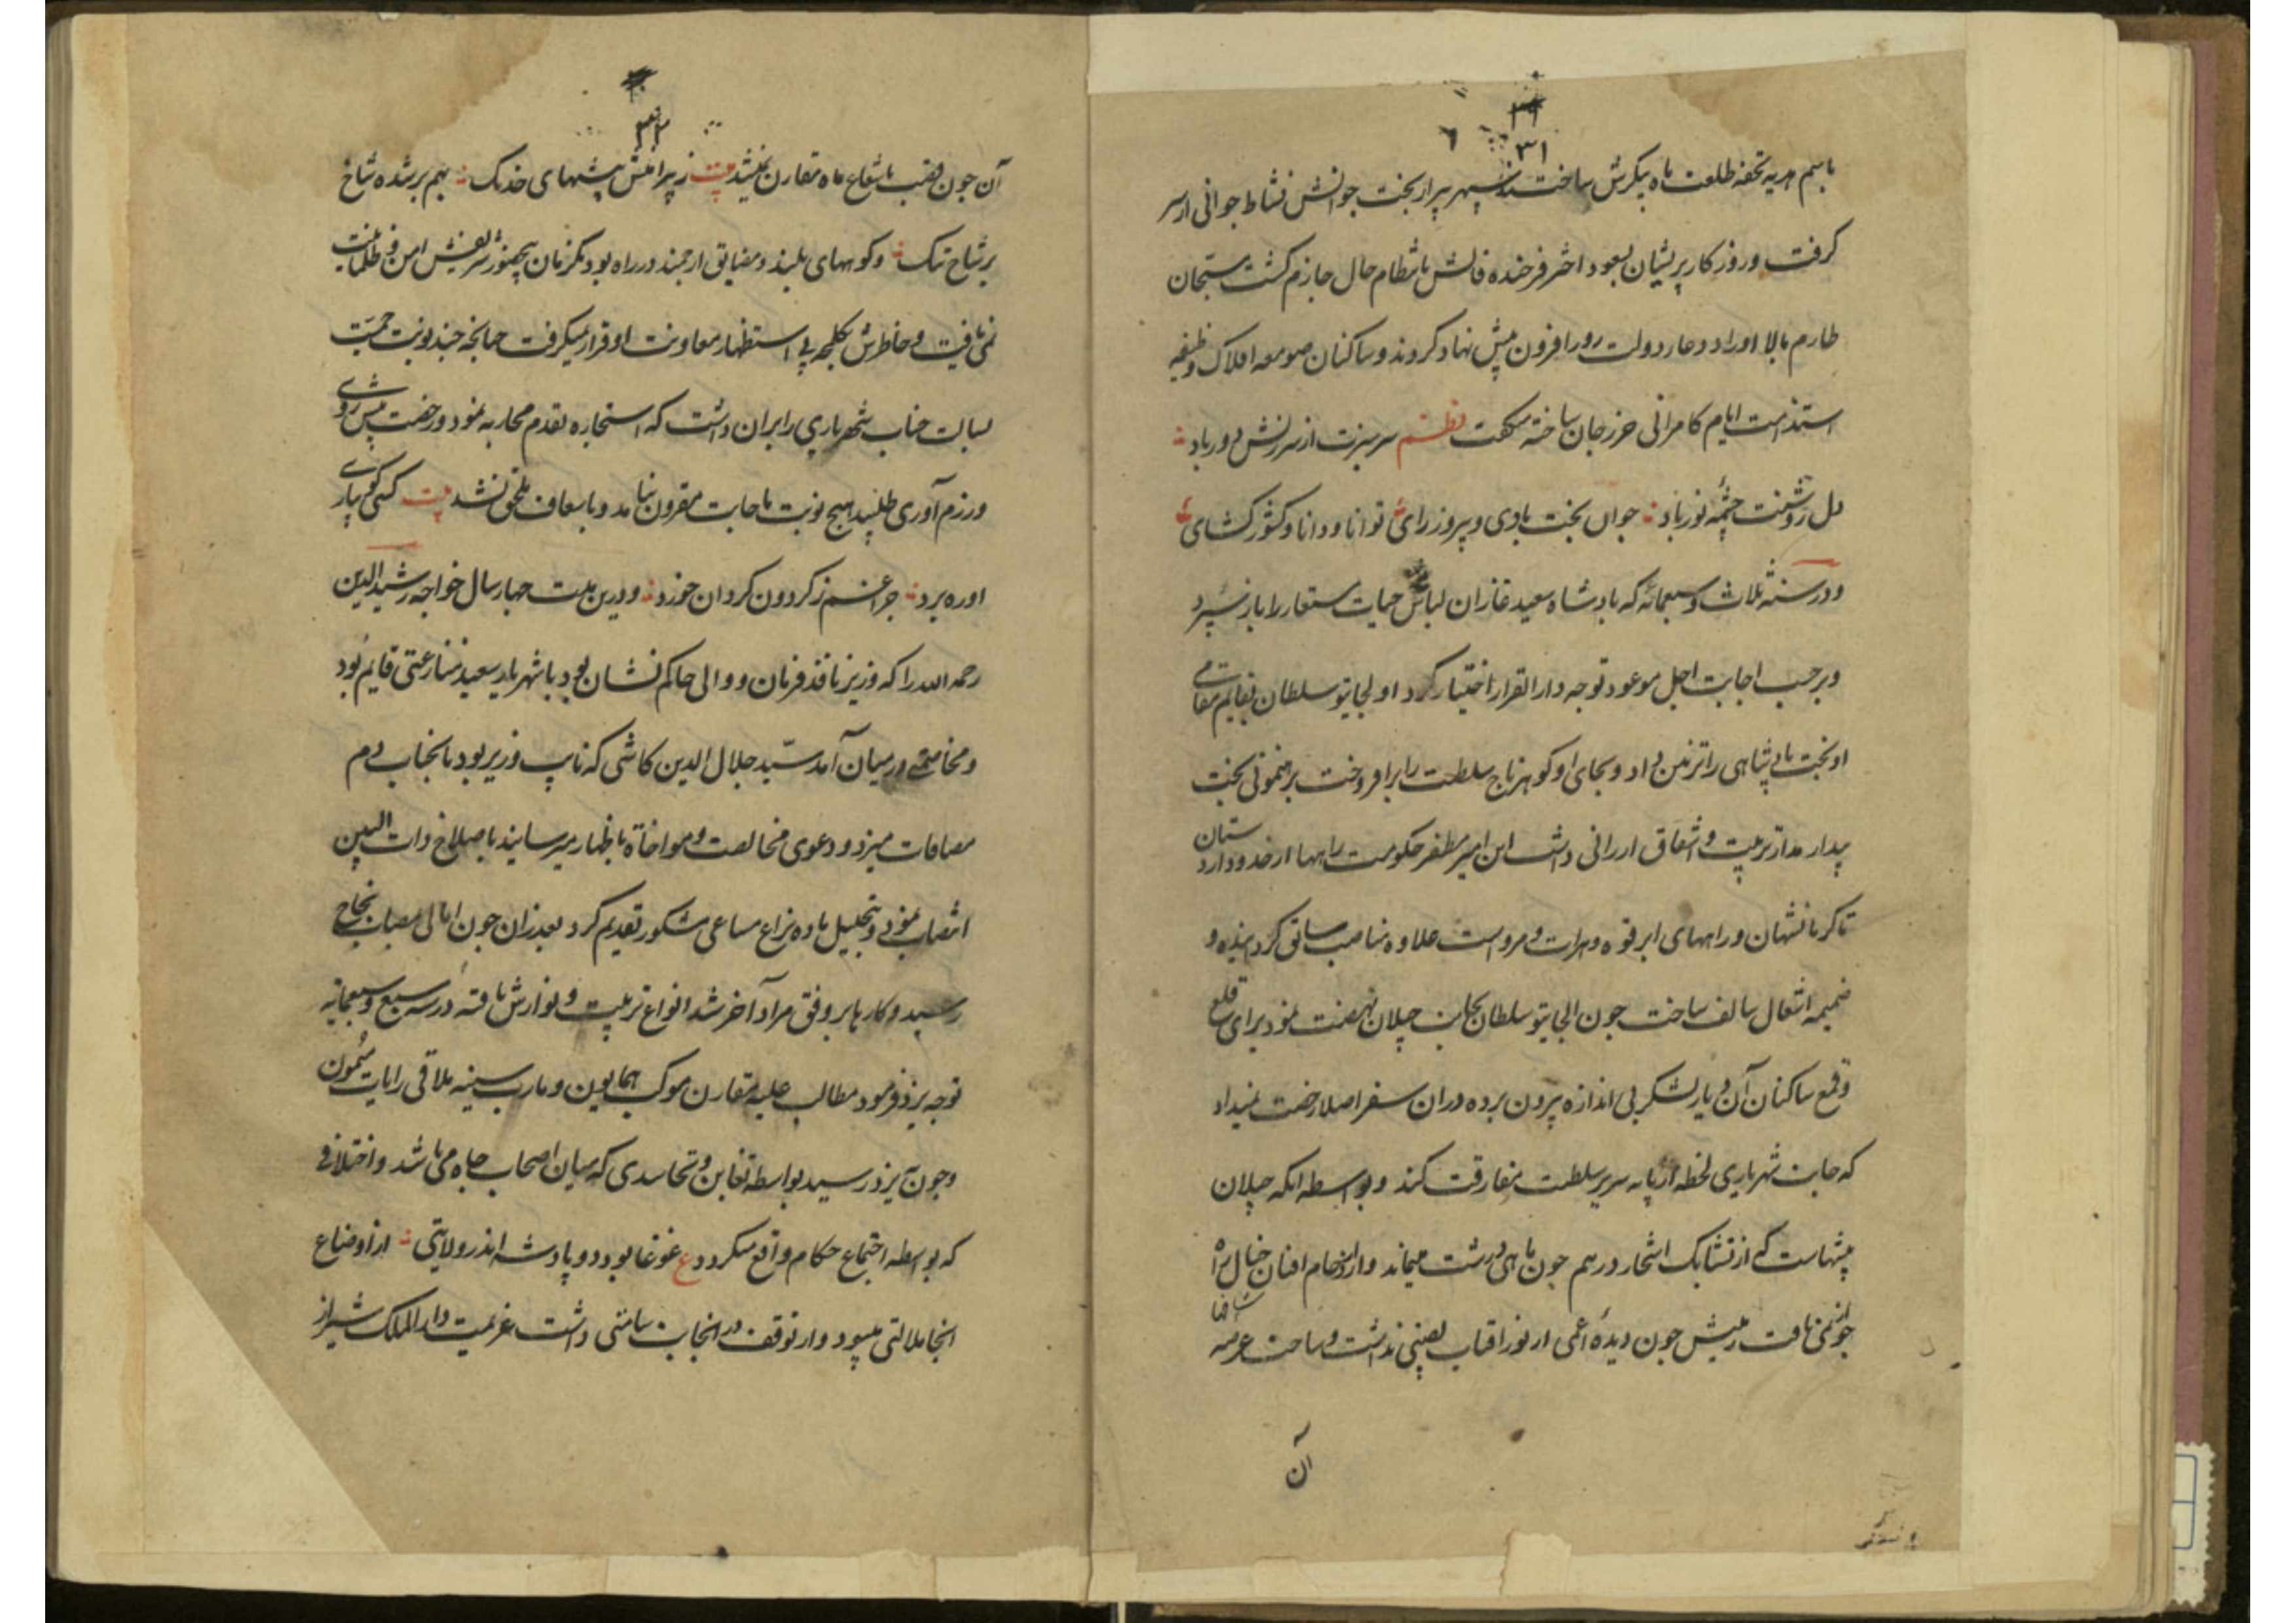 ۳۱
باسم هدیه تحفه طلعت ماه پیکرش ساختند سپهر پیر از بخت جوانش نشاط جوانی از سر
کرفت و روزکار پریشان بسعود اختر فرخنده فالش بانتظام حال جازم کشت مستجان
طارم بالا اوراد دعاء دولت روز افزون پیش نهاد کردند و ساکنان صومعه افلاک وظیفه
استدامت ایام کامرانی حرز جان ساخته میکفت نظم سر سبزت از سرزنش دور باد
دل روشنت چشمه نور باد جوان بخت بادی و پیروز رای توانا و دانا و کشور کشای
و در سنه ثلاث و سبعمائه که بادشاه سعید غازان لباس حیات مستعار را باز سپرد
و برحسب اجابت اجل موعود توجه دار القرار اختیار کرد اولجایتو سلطان بقایم مقامی
او تخت بادشاهی را تزیین داد و بجای او کوهر تاج سلطنت را برافروخت برهنمونی بخت
بیدار مدار تربیت و اشفاق ارزانی داشت ابن امیر مظفر حکومت راهها از حدود اردستان
تا کرمانشهان و راههای ابرقوه و هرات و مروست علاوه مناصب سابق کردانیده و
ضمیمه اشغال سالف ساخت جون الجایتو سلطان بجانب جیلان نهضت نمود برای قلع
و قمع ساکنان آن دیار لشکر بی اندازه بیرون برده دران سفر اصلا رخصت نمیداد
که جانب شهریاری لحظه از پایه سریر سلطنت مفارقت کند و بواسطه انکه جیلان
بیشهاست که از تشابک اشجار درهم جون ماهی در شست میماند و از ازدحام افنان خیال را
جواز نمی یافت زمینش جون دیده اعمی از نور افتاب نصیبی نداشت و ساحت عرصه
آن
۳۲
آن جون قصب با شعاع ماه مقارن نمیشد بیت ز پیرامنش بیشهای خدنک بهم بر شده شاخ
بر شاخ تنک و کوههای بلند و مضایق ارجمند در راه بود یکزمان بیحضور شریفش امن و طمانینت
نمی یافت و خاطرش یکلمحه بی استظهار معاونت او قرار نمیکرفت جنانجه جند نوبت حمیت
بسالت جناب شهریاری را بران داشت که استجازه تقدم محاربه نمود و رخصت پیش روی
و رزم آوری طلبید هیج نوبت باجابت مقرون نیامد و باسعاف ملحق نشد بیت کسی کو بیاری
اوره برد جرا غم ز کردون کردان خورد و درین بیست جهار سال خواجه رشید الدین
رحمه الله را که وزیر نافذ فرمان و والی حاکم نشان بود با شهریار سعید منازعتی قایم بود
و مخاصمتی در میان آمد سید جلال الدین کاشی که نایب وزیر بود با جناب دم
مصافات میزد و دعوی مخالصت و مواخاة باظهار میرسانید باصلاح ذات البین
انتصاب نمود و بتحلیل ماده نزاع مساعی مشکور تقدیم کرد بعد ازان جون امانی مصاب نجاح
رسید و کارها بر وفق مراد آخر شد انواع تربیت و نوازش یافته در سنه سبع و سبعمایه
توجه یزد فرمود مطالب علیه مقارن موکب همایون و مارب سنیه ملاقی رایات میمون
و جون بیزد رسید بواسطه تغابن و تحاسدی که میان اصحاب جاه می باشد و اختلافی
که بواسطه اجتماع حکام واقع میکردد ع غوغا بود دو پادشه اندر ولایتی از اوضاع
انجا ملالتی میبود و از توقف در انجانب سامتی داشت عزیمت دار الملک شیراز